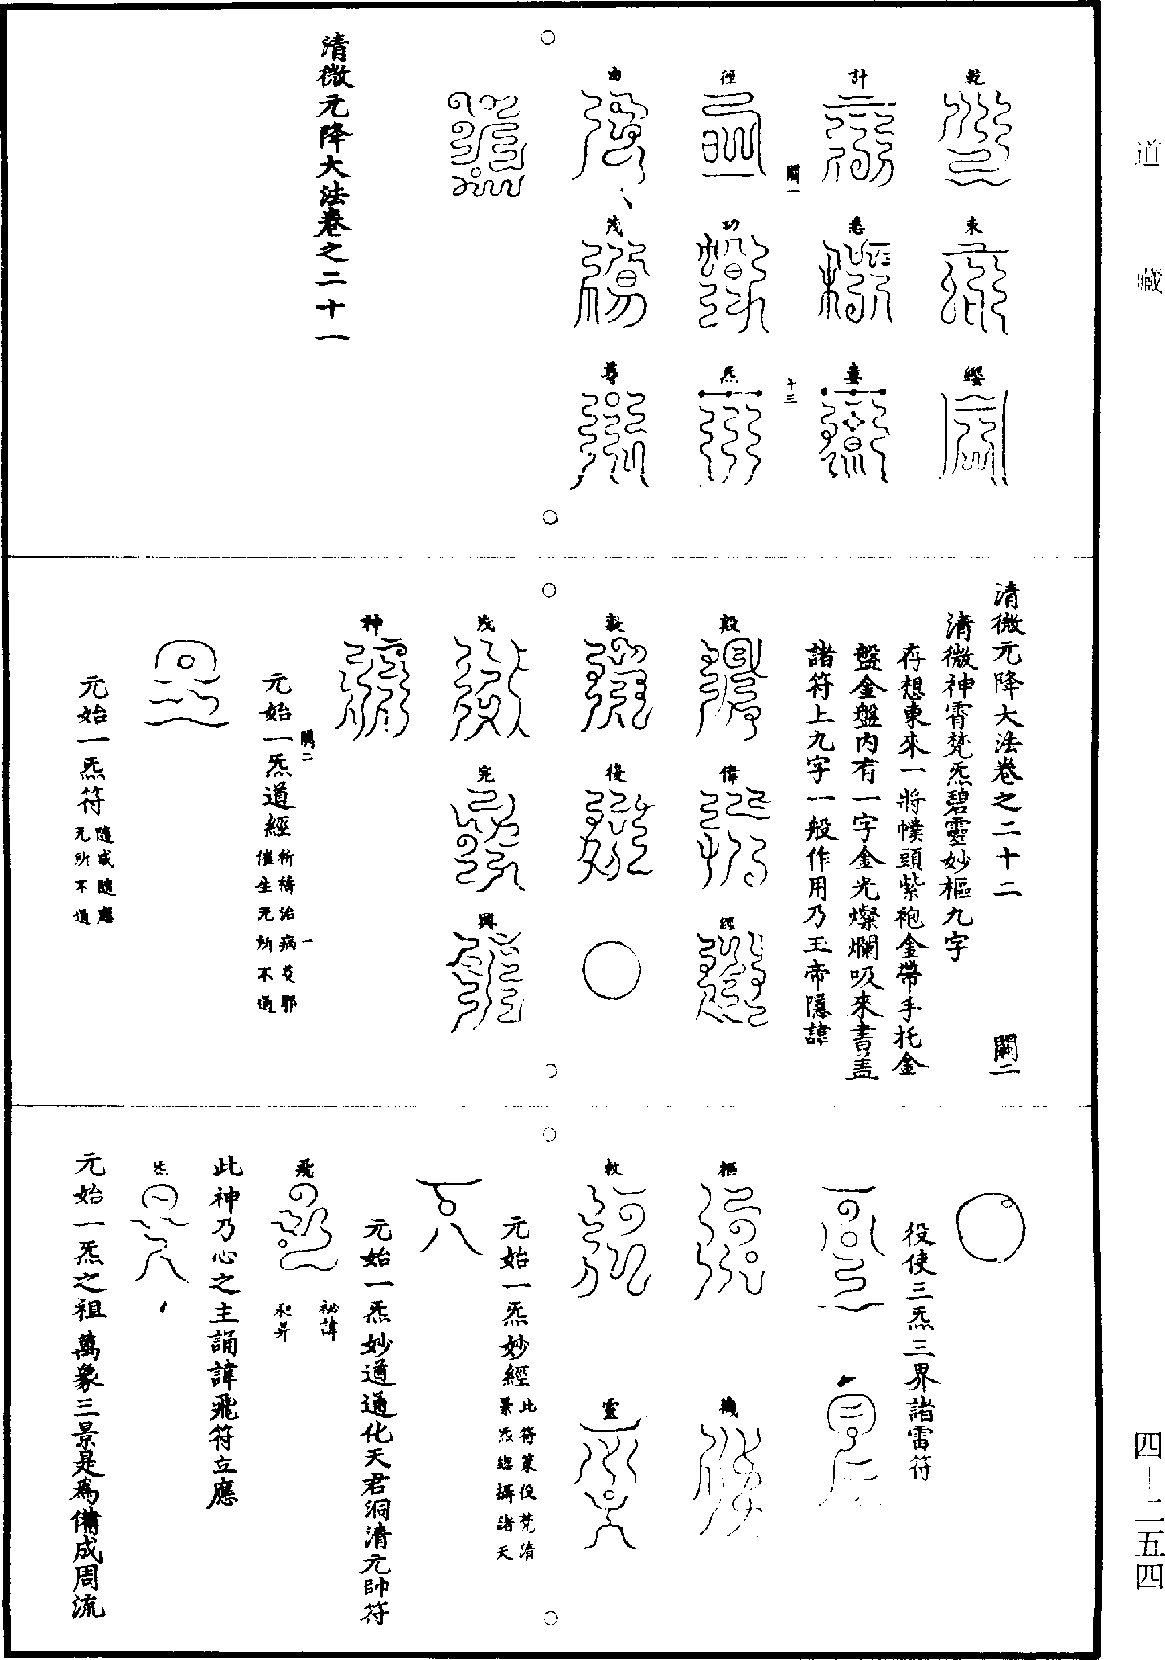 道藏
乾 東 纓
計 卷 臺
關一 十三
徑 功 炁
由 茂 尊
清微元降大法卷之二十一
清微元降大法卷之二十二 關二
清微神霄梵炁碧靈妙樞九字
存想東來一將幞頭紫袍金帶手托金
盤金盤內有一字金光燦爛吸來書盖
諸符上九字一般作用乃玉帝隱諱
殷 偉 經
後
茂 完 興
神
關二 一
元始一炁道經祈禱治病芟邪催生无所不通
元始一炁符隨感隨應无所不通
役使三炁三界諸雷符
樞 機
敕 靈
元始一炁妙經此符策役梵清景炁總攝諸天
元始一炁妙通通化天君洞清元帥符
飛 祕諱 和昇
此神乃心之主誦諱飛符立應
炁
元始一炁之祖萬象三景是爲備成周流
四—二五四